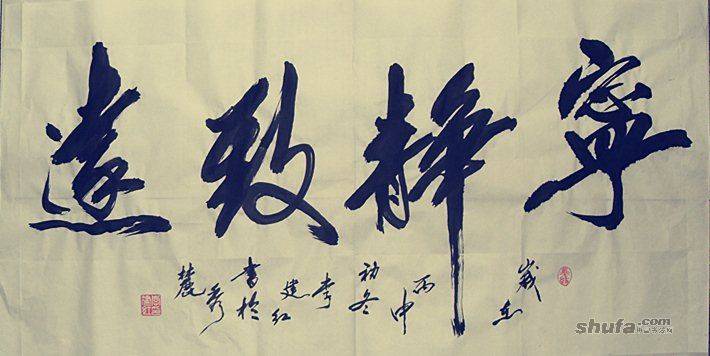 寧靜致遠
歲在
丙申
初冬
李
建红
書於
麓
shufa.com